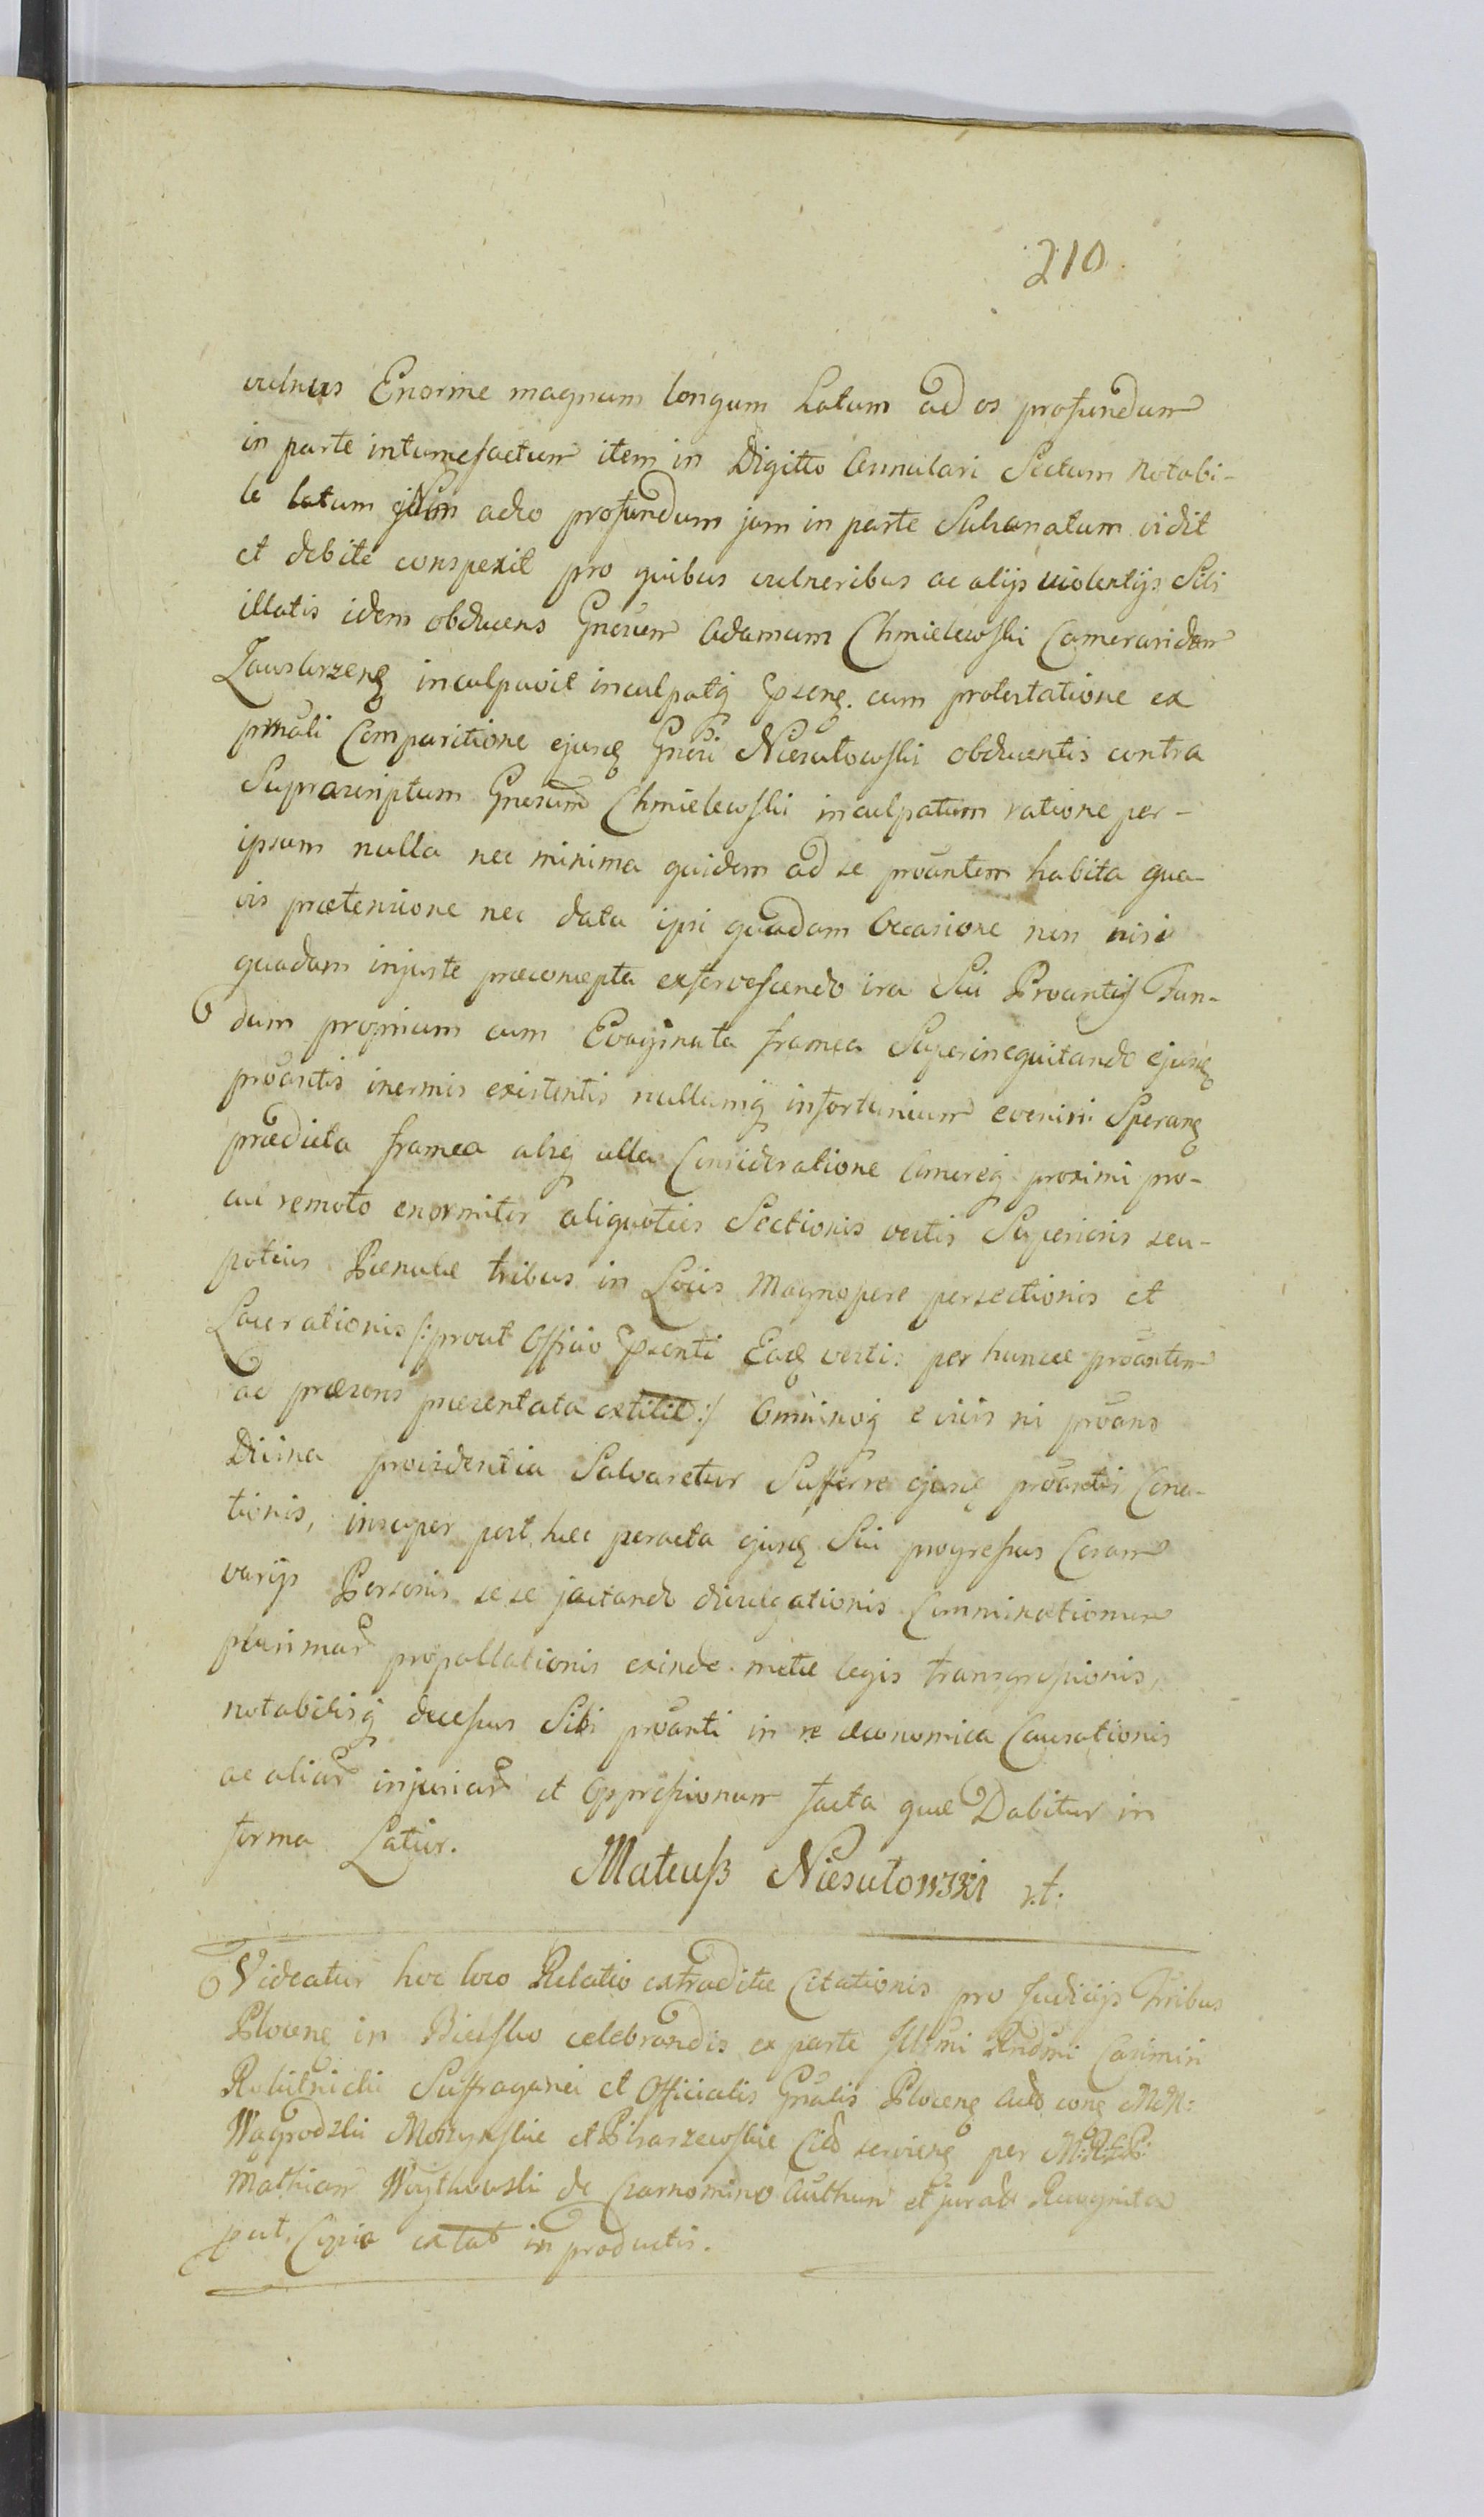 210
vulnus Enorme magnum longum Latum ad os profundum
in parte intumefactum item in Digitto Annulari Sectum Notabi-
le latum adeo profundum jam in parte Sahanatum vidit
et debite conspexit pro quibus vulneribus ac alijs violentijs Sibi
illatis idem obducens Gnosum Adamum Chmielewski Cameraridem
Zawskrzenę inculpavit inculpatq cum protestatione ex
prnali Comparitione ejusq Gnosi Niesułowski obducentis contra
Suprascriptum Gnosum Chmielewski inculpatum ratione per-
ipsum nulla nec minima quidem ad se proantem habita qua-
vis prætensione nec data ipsi quadam Occasione non nisi
quadam injuste præconcepta exfervescendo ira Sui Proantis Fun-
dum proprium cum Evaginata framea Superinequitando ejusq
proantis inermis existentis nullumq infortunium evenire Speranę
prædicta framea absq ulla Consideratione Amoreq proximi pro-
cul remoto enormiter aliquoties Sectionis vestis Superioris seu-
potius Pænulæ tribus in Locis Magnopere persectionis et
Lacerationis /: prout Officio Eadę vestis per hunce proantem
ad præsens præsentata extitit :/ Omninoq e vivis ni proans
Divina providentia Salvaretur Sufferre ejusq proantis Cona-
tionis, insuper post hæc peracta ejusq Sui progressus Coram
varijs Personis se se jactando divulgationis Comminationum
plurimar propallationis exinde metæ legis transgressionis,
notabilisq decessus Sibi proanti in re œconomica Causationis
ac aliar injuriar et Oppressionum facta quæ Dabitur in
forma Latiur.
Mateusz Niesułowski
Videatur hoc loco Relatio extraditæ Citationis pro Judicijs Tribus
Plocenę in Bielsko celebrandis ex parte Illsmi Rndmi Casimiri
Rokitnicki Suffraganei et Officialis Gnalis Plocenę conę
Wagrodzki et Pisarzewskie servienę per
Mathiam Woythowski de Czarnomino Authen et jurat Recognita
Copia extat in productis.